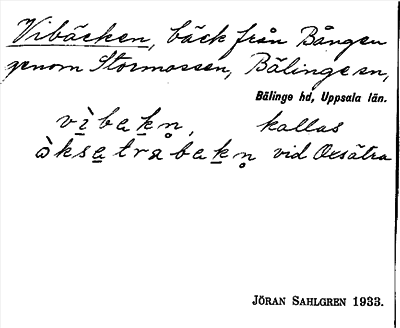 Vibäcken, bäck från Bången
genom Stormossen, Bälinge sn,
Bälinge hd, Uppsala län.
vì̲ba̲k̲n̥, kallas
òksa̲traba̲k̲n̥ vid Oxsätra
JÖRAN SAHLGREN 1933.